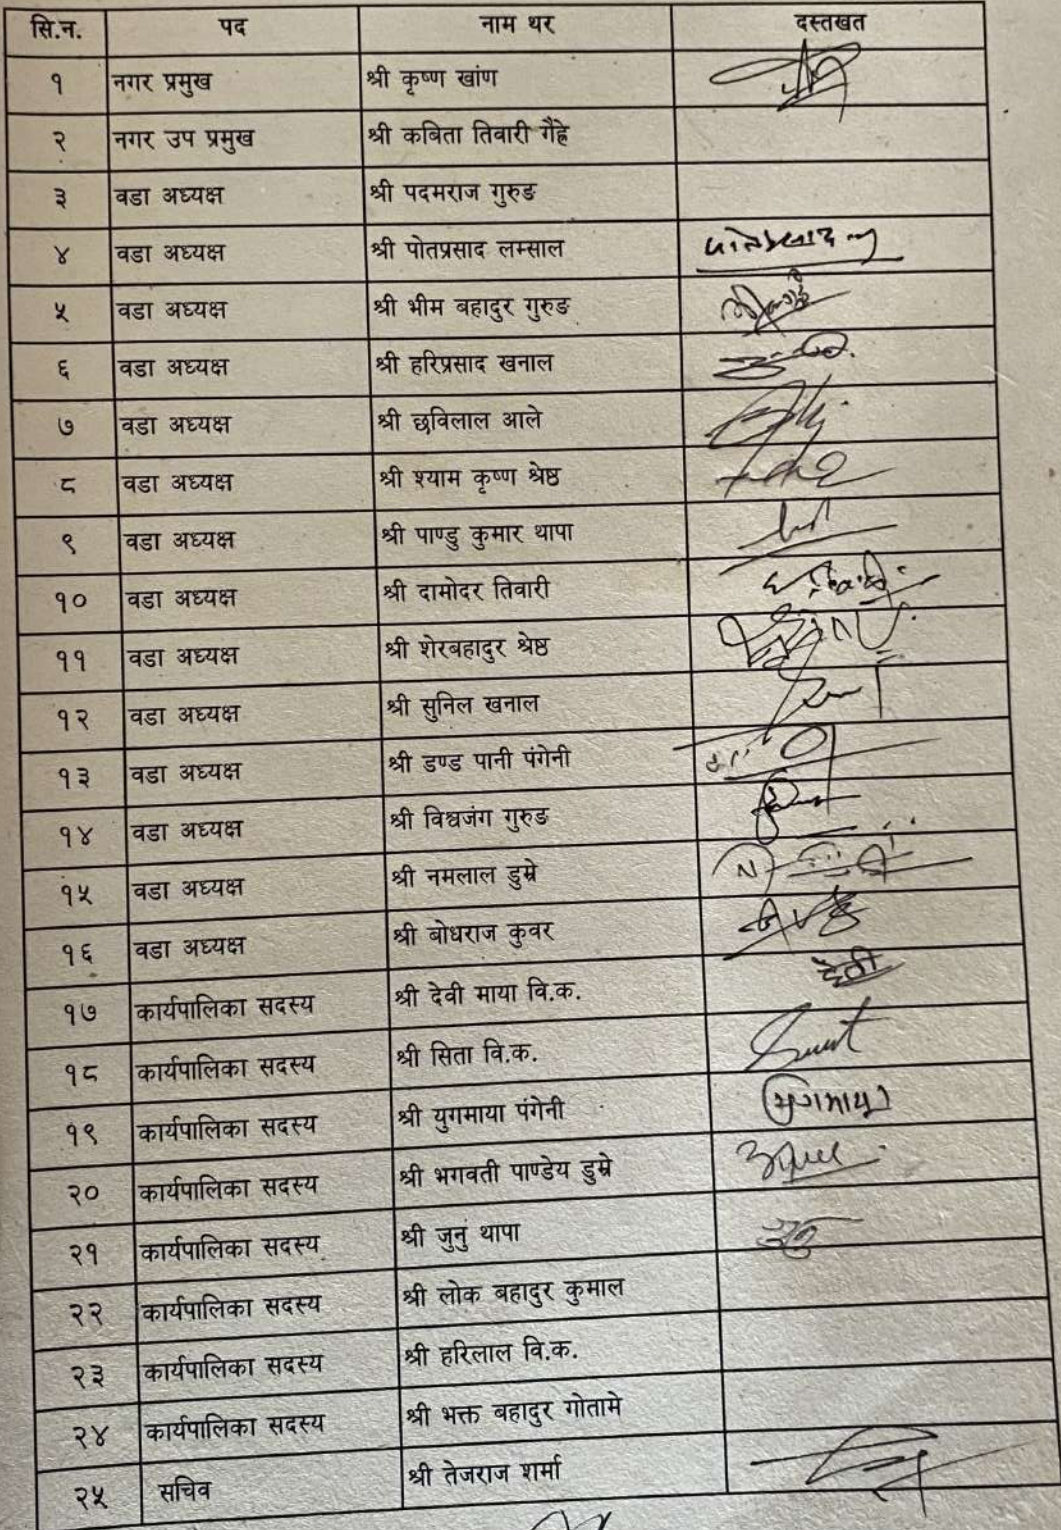 सि.न. पद नाम थर दस्तखत
१ नगर प्रमुख श्री कृष्ण खांण
२ नगर उप प्रमुख श्री कबिता तिवारी गैह्रे
३ वडा अध्यक्ष श्री पदमराज गुरुङ
४ वडा अध्यक्ष श्री पोतप्रसाद लम्साल
५ वडा अध्यक्ष श्री भीम बहादुर गुरुङ
६ वडा अध्यक्ष श्री हरिप्रसाद खनाल
७ वडा अध्यक्ष श्री छविलाल आले
८ वडा अध्यक्ष श्री श्याम कृष्ण श्रेष्ठ
९ वडा अध्यक्ष श्री पाण्डु कुमार थापा
१० वडा अध्यक्ष श्री दामोदर तिवारी
११ वडा अध्यक्ष श्री शेरबहादुर श्रेष्ठ
१२ वडा अध्यक्ष श्री सुनिल खनाल
१३ वडा अध्यक्ष श्री डण्ड पानी पंगेनी
१४ वडा अध्यक्ष श्री विश्वजंग गुरुङ
१५ वडा अध्यक्ष श्री नमलाल डुम्रे
१६ वडा अध्यक्ष श्री बोधराज कुवर
१७ कार्यपालिका सदस्य श्री देवी माया वि.क. देवी
१८ कार्यपालिका सदस्य श्री सिता वि.क.
१९ कार्यपालिका सदस्य श्री युगमाया पंगेनी
२० कार्यपालिका सदस्य श्री भगवती पाण्डेय डुम्रे
२१ कार्यपालिका सदस्य श्री जुनुं थापा
२२ कार्यपालिका सदस्य श्री लोक बहादुर कुमाल
२३ कार्यपालिका सदस्य श्री हरिलाल वि.क.
२४ कार्यपालिका सदस्य श्री भक्त बहादुर गोतामे
२५ सचिव श्री तेजराज शर्मा